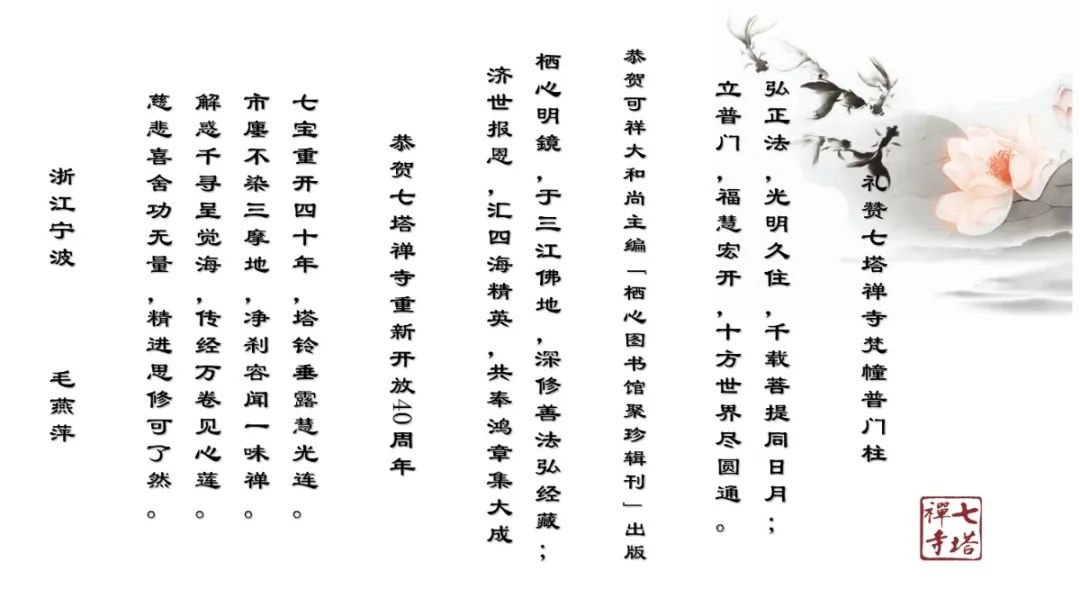 礼赞七塔禅寺梵幢普门柱
弘正法，光明久住，千载菩提同日月；
立普门，福慧宏开，十方世界尽圆通。
恭贺可祥大和尚主编「栖心图书馆聚珍辑刊」出版
栖心明鏡，于三江佛地，深修善法弘经藏；
济世报恩，汇四海精英，共奉鸿章集大成
恭贺七塔禅寺重新开放40周年
七宝重开四十年，塔铃垂露慧光连。
市廛不染三摩地，净刹容闻一味禅。
解惑千寻呈觉海，传经万卷见心莲。
慈悲喜舍功无量，精进思修可了然。
浙江宁波 毛燕萍
七塔
禪寺